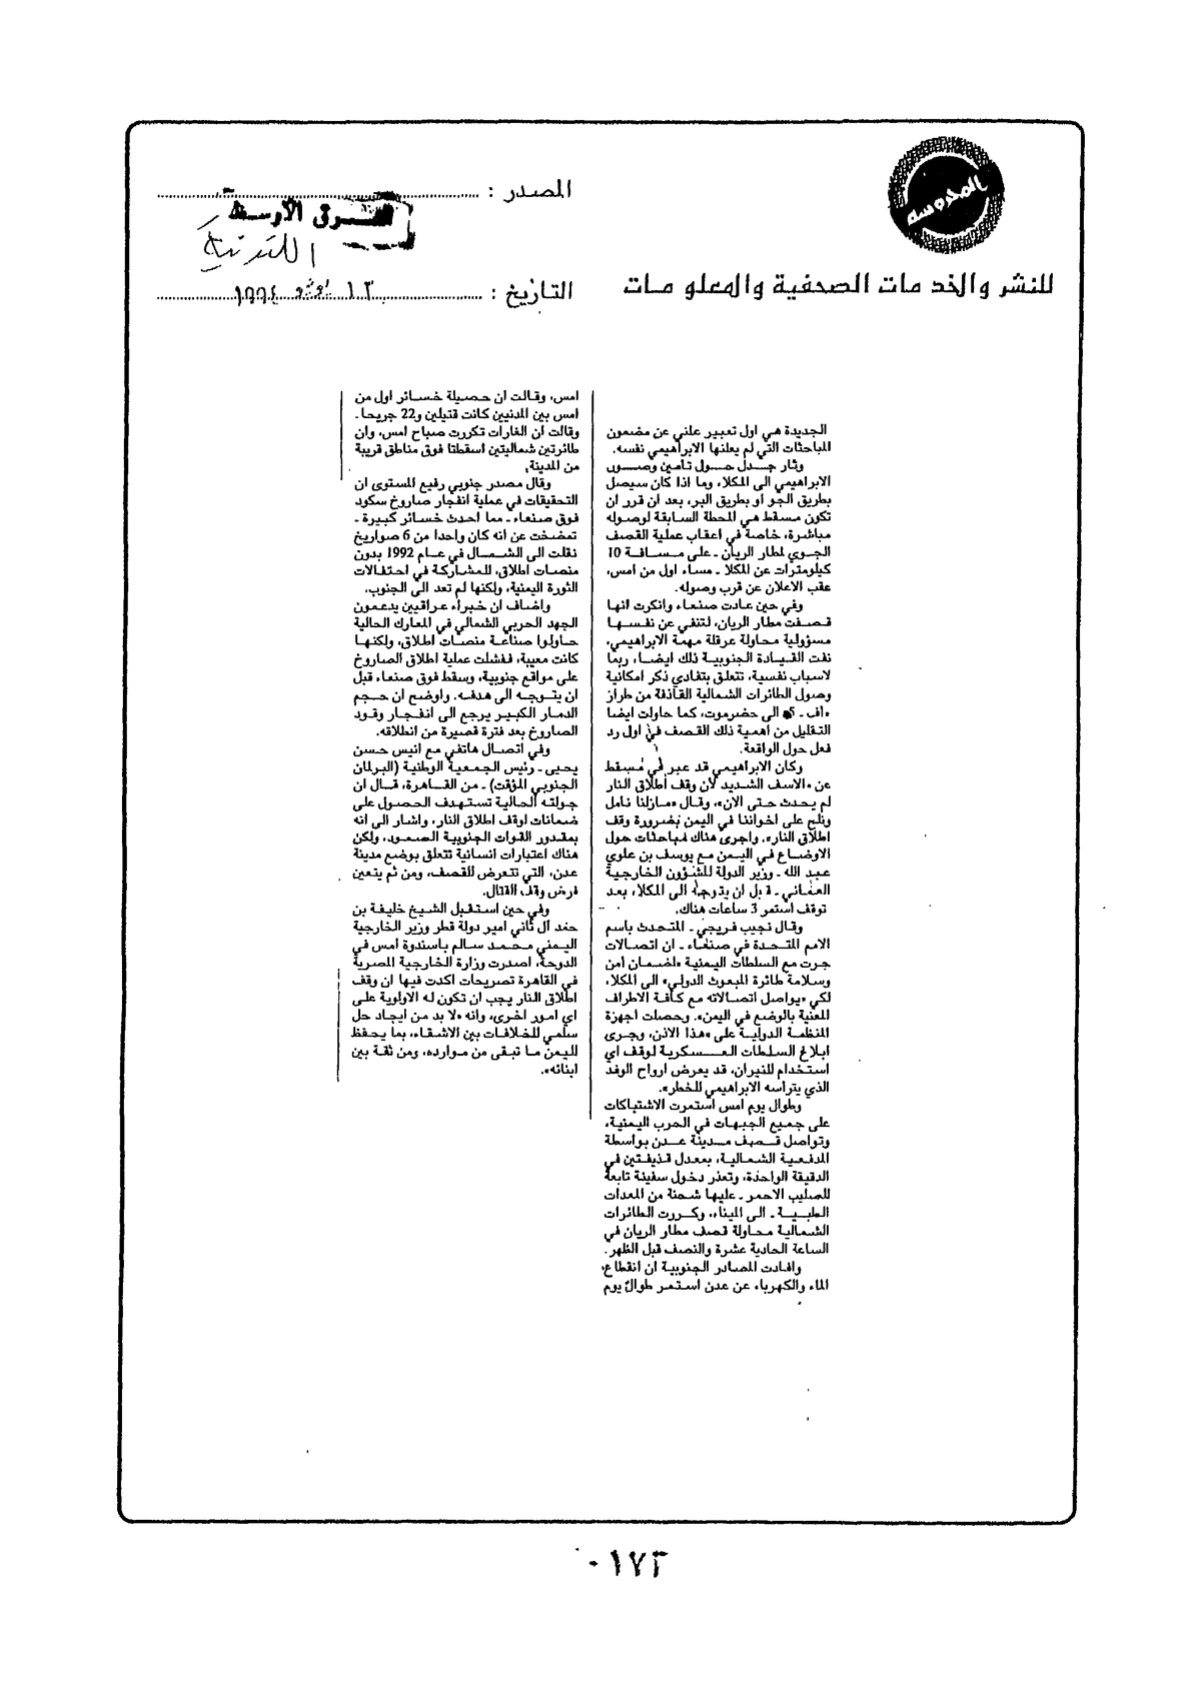 المحروسه
للنشر والخدمات الصحفية والمعلومات
المصدر :
الشرق الأوسط
اللندنية
التاريخ : ١٣ يونيو ١٩٩٤
الجديدة هي اول تعبير علني عن مضمون
المباحثات التي لم يعلنها الابراهيمي نفسه.
وثار جدل حول تأمين وصول
الابراهيمي الى المكلا، وما اذا كان سيصل
بطريق الجو او بطريق البر، بعد ان قرر ان
تكون مسقط هي المحطة السابقة لوصوله
مباشرة، خاصة في اعقاب عملية القصف
الجوي لمطار الريان ـ على مسافة 10
كيلومترات عن المكلا ـ مساء اول من امس،
عقب الاعلان عن قرب وصوله.
وفي حين عادت صنعاء وانكرت انها
قصفت مطار الريان، لتنفي عن نفسها
مسؤولية محاولة عرقلة مهمة الابراهيمي،
نفت القيادة الجنوبية ذلك ايضا، ربما
لاسباب نفسية، تتعلق بتفادي ذكر امكانية
وصول الطائرات الشمالية القاذفة من طراز
«اف ـ 5» الى حضرموت، كما حاولت ايضا
التقليل من اهمية ذلك القصف في اول رد
فعل حول الواقعة.
وكان الابراهيمي قد عبر في مسقط
عن «الاسف الشديد لان وقف اطلاق النار
لم يحدث حتى الان»، وقال «مازلنا نامل
ونلح على اخواننا في اليمن بضرورة وقف
اطلاق النار»، واجرى هناك مباحثات حول
الاوضاع في اليمن مع يوسف بن علوي
عبد الله ـ وزير الدولة للشؤون الخارجية
العماني ـ قبل ان يتوجه الى المكلا، بعد
توقف استمر 3 ساعات هناك.
وقال نجيب فريجي ـ المتحدث باسم
الامم المتحدة في صنعاء ـ ان اتصالات
جرت مع السلطات اليمنية «لضمان امن
وسلامة طائرة المبعوث الدولي» الى المكلا،
لكي «يواصل اتصالاته مع كافة الاطراف
المعنية بالوضع في اليمن». وحصلت اجهزة
المنظمة الدولية على «هذا الاذن، وجرى
ابلاغ السلطات العسكرية لوقف اي
استخدام للنيران، قد يعرض ارواح الوفد
الذي يتراسه الابراهيمي للخطر».
وطوال يوم امس استمرت الاشتباكات
على جميع الجبهات في الحرب اليمنية،
وتواصل قصف مدينة عدن بواسطة
المدفعية الشمالية، بمعدل قذيفتين في
الدقيقة الواحدة، وتعذر دخول سفينة تابعة
للصليب الاحمر ـ عليها شحنة من المعدات
الطبية ـ الى الميناء، وكررت الطائرات
الشمالية محاولة قصف مطار الريان في
الساعة الحادية عشرة والنصف قبل الظهر.
وافادت المصادر الجنوبية ان انقطاع
الماء والكهرباء عن عدن استمر طوال يوم
امس، وقالت ان حصيلة خسائر اول من
امس بين المدنيين كانت قتيلين و22 جريحا.
وقالت ان الغارات تكررت صباح امس، وان
طائرتين شماليتين اسقطتا فوق مناطق قريبة
من المدينة.
وقال مصدر جنوبي رفيع المستوى ان
التحقيقات في عملية انفجار صاروخ سكود
فوق صنعاء ـ مما احدث خسائر كبيرة ـ
تمخضت عن انه كان واحدا من 6 صواريخ
نقلت الى الشمال في عام 1992 بدون
منصات اطلاق، للمشاركة في احتفالات
الثورة اليمنية، ولكنها لم تعد الى الجنوب.
واضاف ان خبراء عراقيين يدعمون
الجهد الحربي الشمالي في المعارك الحالية
حاولوا صناعة منصات اطلاق، ولكنها
كانت معيبة، ففشلت عملية اطلاق الصاروخ
على مواقع جنوبية، وسقط فوق صنعاء قبل
ان يتوجه الى هدفه. واوضح ان حجم
الدمار الكبير يرجع الى انفجار وقود
الصاروخ بعد فترة قصيرة من انطلاقه.
وفي اتصال هاتفي مع انيس حسن
يحيى ـ رئيس الجمعية الوطنية (البرلمان
الجنوبي المؤقت) ـ من القاهرة، قال ان
جولته الحالية تستهدف الحصول على
ضمانات لوقف اطلاق النار، واشار الى انه
بمقدور القوات الجنوبية الصمود، ولكن
هناك اعتبارات انسانية تتعلق بوضع مدينة
عدن، التي تتعرض للقصف، ومن ثم يتعين
فرض وقف القتال.
وفي حين استقبل الشيخ خليفة بن
حمد آل ثاني امير دولة قطر وزير الخارجية
اليمني محمد سالم باسندوة امس في
الدوحة، اصدرت وزارة الخارجية المصرية
في القاهرة تصريحات اكدت فيها ان وقف
اطلاق النار يجب ان تكون له الاولوية على
اي امور اخرى، وانه «لا بد من ايجاد حل
سلمي للخلافات بين الاشقاء، بما يحفظ
لليمن ما تبقى من موارده، ومن ثقة بين
ابنائه».
٠١٧٣